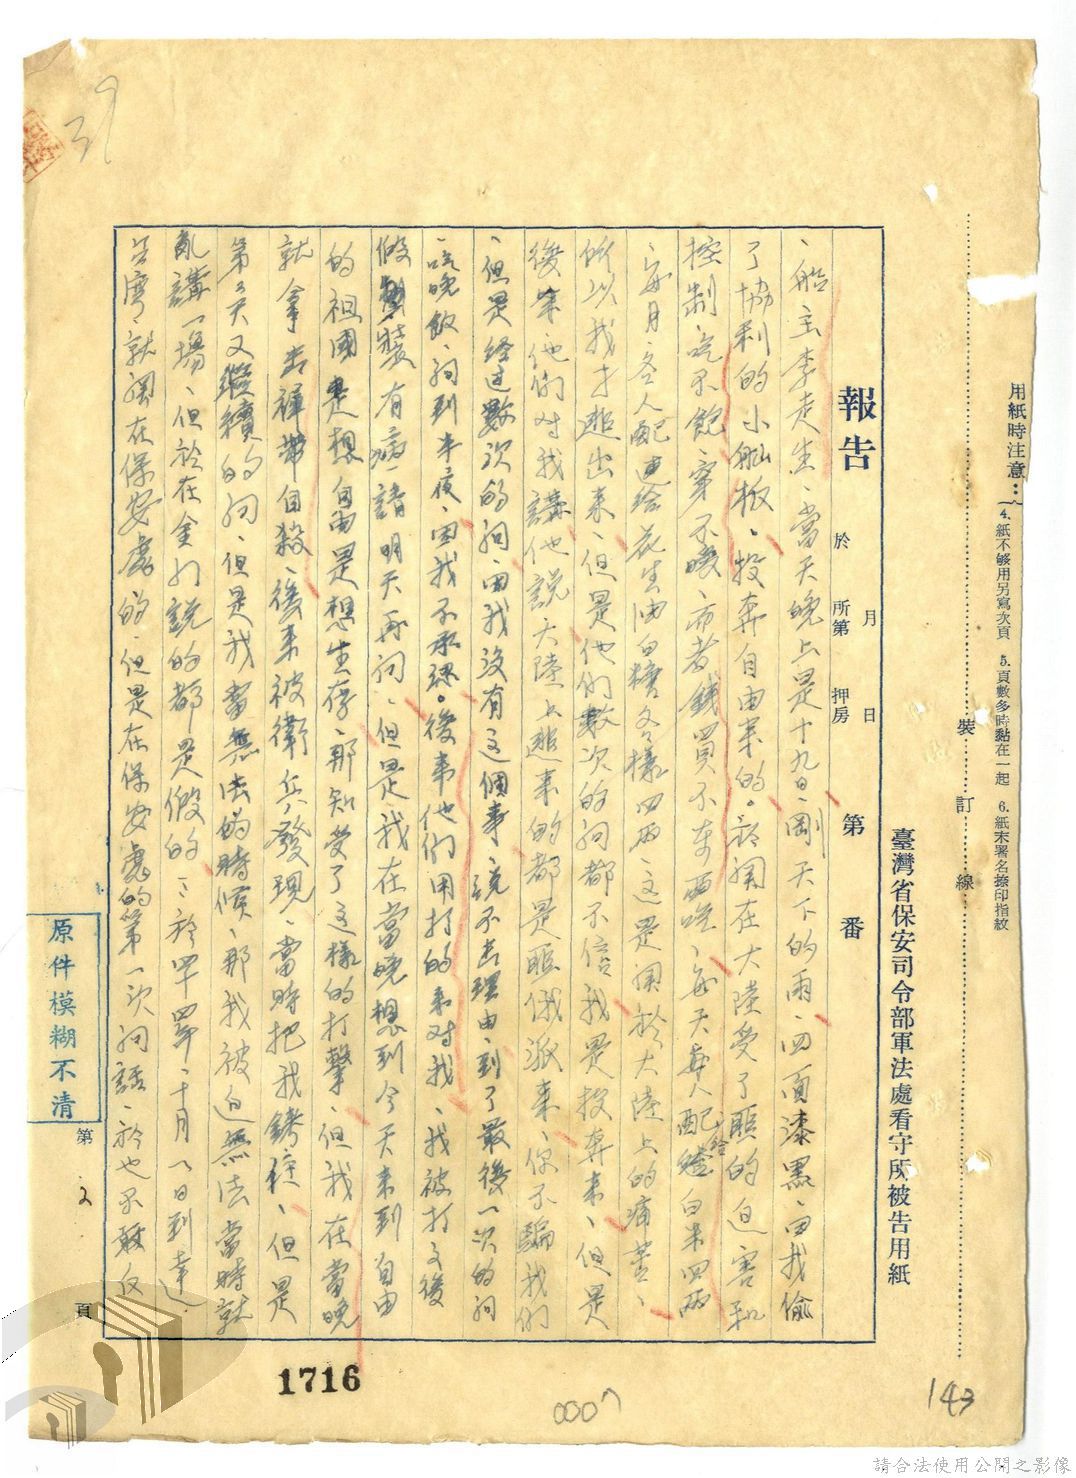 用紙時注意： 4.紙不够用另寫次頁 5.頁數多時黏在一起 6.紙末署名捺印指紋
裝 訂 線
臺灣省保安司令部軍法處看守所被告用紙
報告 於 所第 押房 月 日 第 番
、船主李走生、當天晚上是十九日、剛天下的雨、四面漆黑、由我偷
了協利的小舢板、投奔自由來的。於關在大陸受了匪的迫害和
控制、吃不飽、穿不暖、而者錢買不東西吃、每天每人配給白米四兩
、每月、每人配給花生油白糖各樣四兩、這是關於大陸上的痛苦、
所以我才逃出來、但是他們數次的詞都不信我是投奔來、但是
後來、他們對我講他說大陸上逃來的都是匪俄派來、你不騙我們
、但是经过數次的詞、由我沒有这個事、説不出理由、到了最後一次的詞
、吃晚飯、詞到半夜、因我不承認。後來他們用打的來对我、我被打之後
假裝有病、請明天再詞、但是我在當晚想到今天來到自由
的祖國是想自由是想生存、那知受了这樣的打擊、但我在當晚
就拿出褲帶自殺、後來被衛兵發現、當時把我銬住、但是
第二天又繼續的詞、但是我當無法的時候、那我被迫無法當時就
亂講一場、但於在金門説的都是假的、於四十四年、十月 日到達
台灣、就關在保安處的、但是在保安處的第一次詞話、於也不敢反
第 2 頁
原件模糊不清
39
1716
0007
143
請合法使用公開之影像